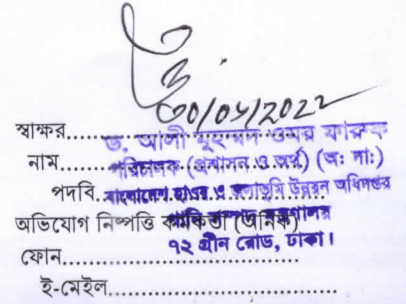 30/05/2022
স্বাক্ষর..........ড. আলী মুহম্মদ ওমর ফারুক
নাম..........পরিচালক (প্রশাসন ও অর্থ) (অ: দা:)
পদবি..বাংলাদেশ হাওর ও জলাভূমি উন্নয়ন অধিদপ্তর
অভিযোগ নিষ্পত্তি কর্মকর্তা (অনিক)
৭২ গ্রীন রোড, ঢাকা।
ফোন..........
ই-মেইল..........